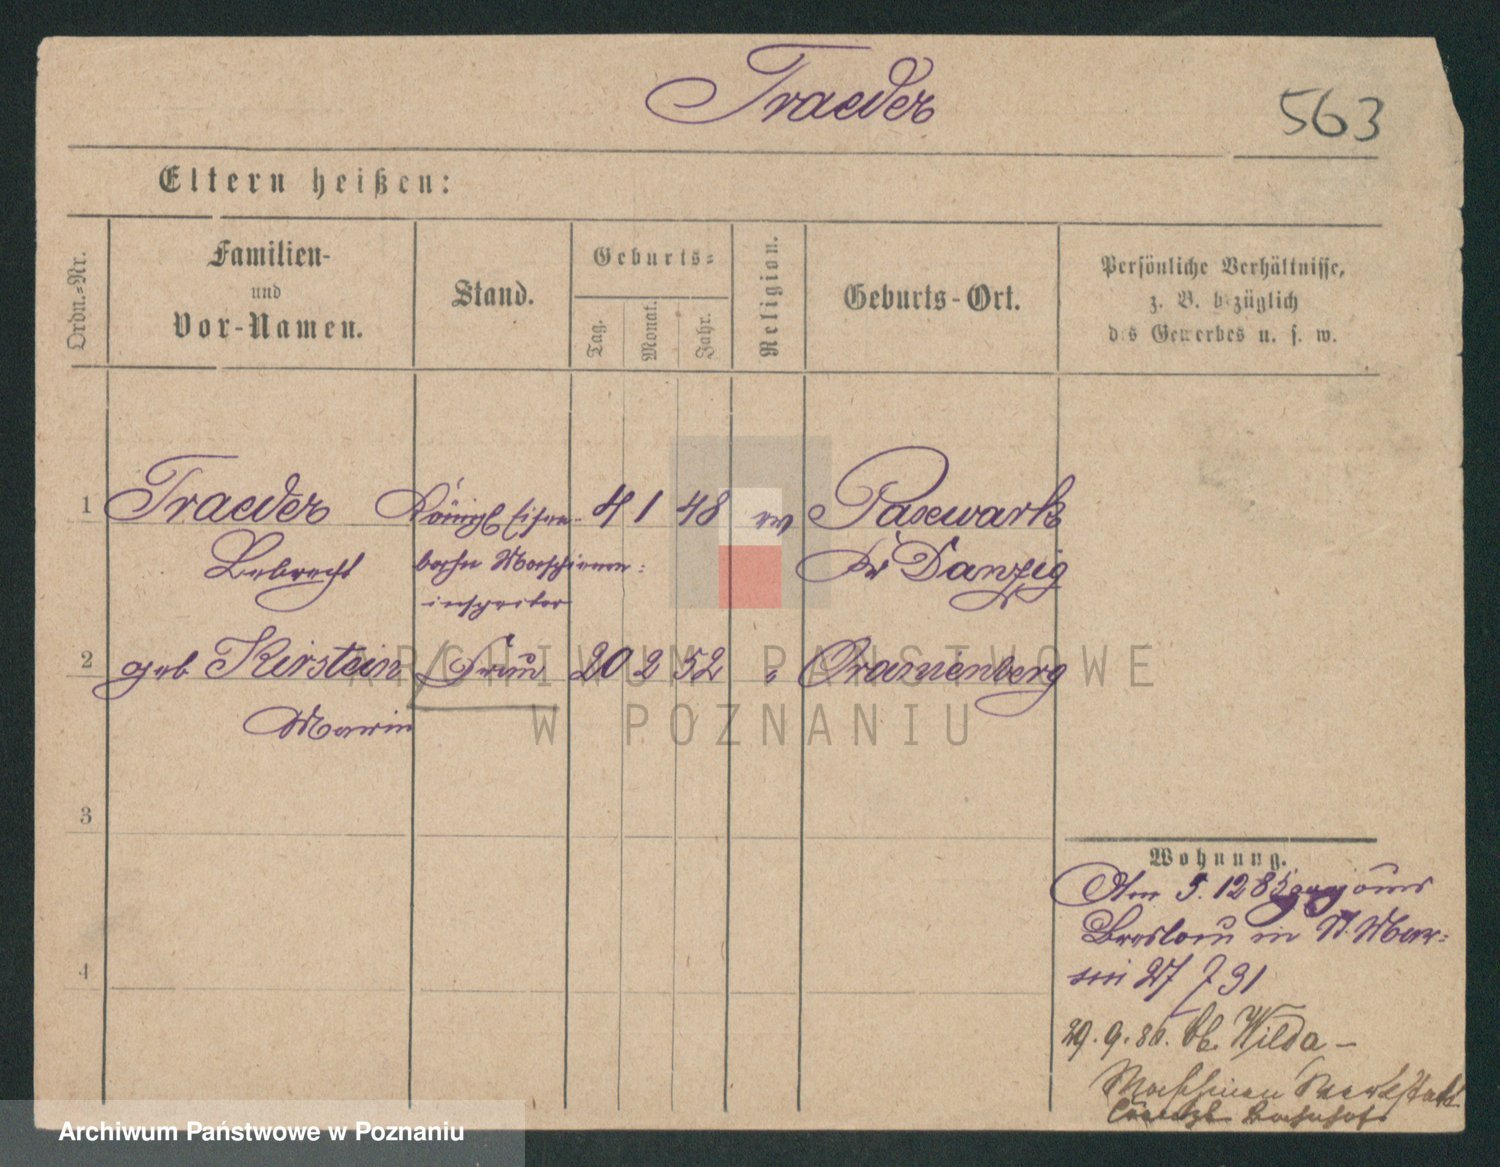 Traeder
563
Eltern heißen:
Ordn.-Nr.
Familien-
und
Vor-Namen.
Stand.
Geburts-
Tag.
Monat.
Jahr.
Religion.
Geburts-Ort.
Persönliche Verhältnisse,
z. B. bezüglich
des Gewerbes u. s. w.
1 Traeder Königl Eisen- 4 1 48 ev Pasewark
Lebrecht bahn Maschienen: Kr Danzig
inspektor
2 geb Kirstein Frau 20 2 52 " Oranienberg
Marie
3
4
Wohnung.
Am 5. 12 85 aus
Breslau in St. Mar-
tin 27 / 31
29. 9. 86. Wilda -
Maschinen Werkstatt
Bahnhof
ARCHIWUM PAŃSTWOWE
W POZNANIU
Archiwum Państwowe w Poznaniu